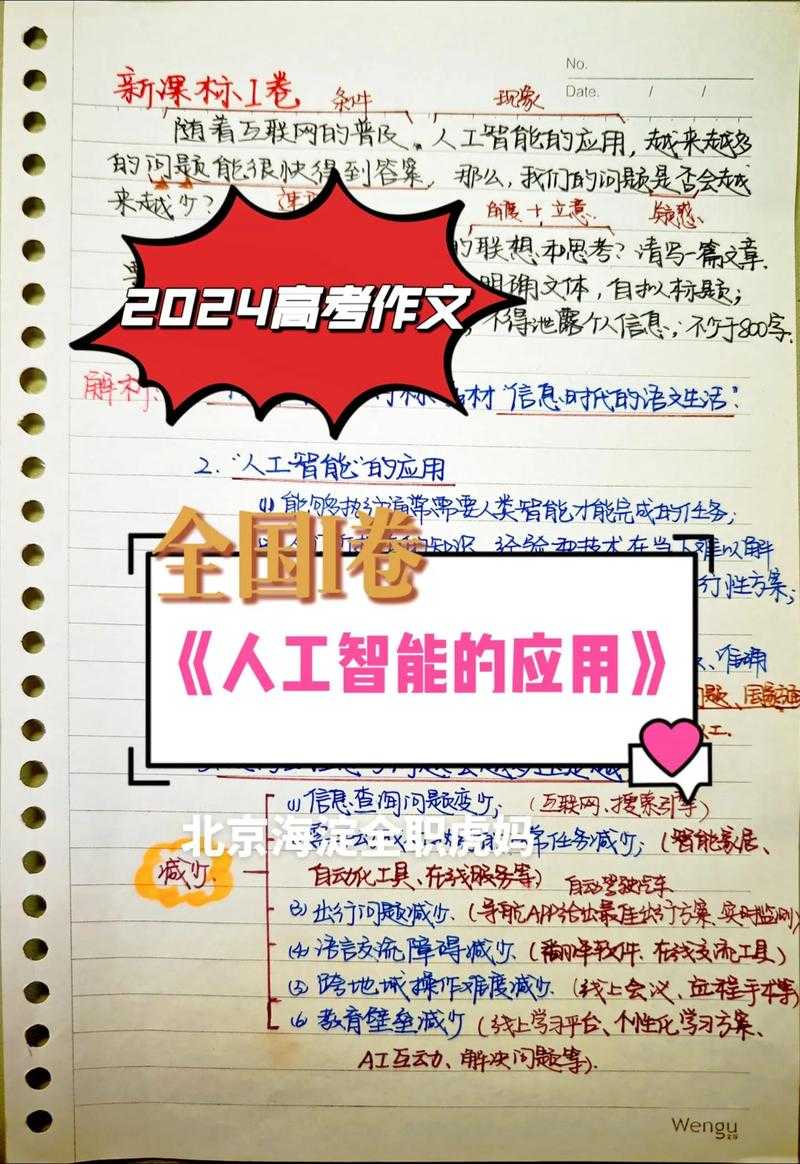 No.
Date. / /
新课标I卷 条件 现象
随着互联网的普及、人工智能的应用,越来越多
的问题能很快得到答案。那么,我们的问题是否会越
来越少?
角度+立意 疑惑
的联想和思考?请写一篇文章.
明确文体,自拟标题;
2024高考作文
不得泄露个人信息;不少于800字.
解析:
材“信息时代的语文生活”.
2.“人工智能”的应用
(1) 能够执行通常需要人类智能才能完成的任务;
知识、经验和技术在当下难以解
全国I卷
行性方案;
《人工智能的应用》
、准确
问题、国家
人工.
减少
(1) 信息查询问题变少;(互联网、搜索引擎)
北京海淀全职虎妈
常任务减少;(智能家居、
自动化工具、在线服务等)自动驾驶汽车
(3) 出行问题减少.(导航APP给出最佳出行方案、实时监测)
(4) 语言交流障碍减少.(翻译软件、在线交流工具)
(5) 跨地域操作难度减少.(线上会议、远程手术等)
(6) 教育壁垒减少(线上学习平台、个性化学习方案、
AI互动、解决问题等).
Wengu